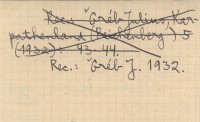 Rec.: Gréb Julius, Kar-
pathenland (Reichenberg) 5
(1932): 43-44.
Rec.: Gréb J. 1932.